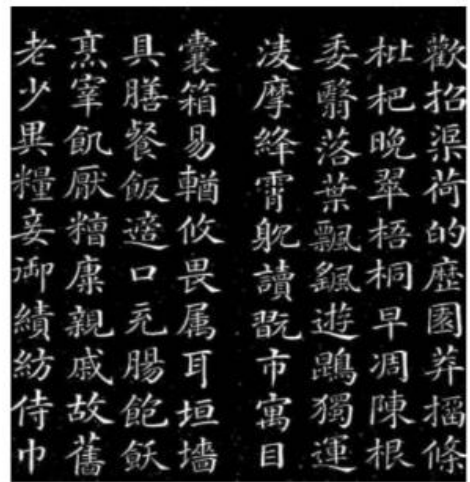 歡招渠荷的歷園莽條
枇杷晚翠梧桐早凋陳根
委翳落葉飄颻遊鵾獨運
淩摩絳霄躭讀翫市寓目
囊箱易輶攸畏属耳垣墻
具膳餐飯適口充腸飽飫
烹宰飢厭糟康親戚故舊
老少異糧妾御績紡侍巾